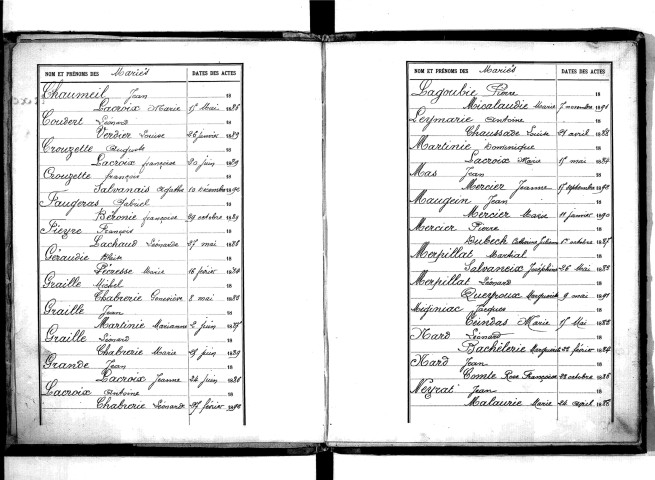 NOM ET PRÉNOMS DES Mariés DATES DES ACTES
18
Chaumeil Jean 18
Lacroix Marie 17 Mai 188
Coudert Léonard 18
Verdier Louise 26 janvier 1889
Crouzette Auguste 18
Lacroix françoise 20 juin 1889
Crouzette françois 18
Salvanais Agathe 10 Décembre 1890
Faugeras Gabriel 18
Béronie françoise 29 octobre 1889
Fieyre François 18
Lachaud Léonarde 27 mai 1888
Géraudie 18
Marie 16 février 18
Graille Michel 18
Chabrerie Geneviève 8 mai 188
Graille Jean 18
Martinie Marianne 2 juin 1887
Graille Léonard 18
Chabrerie Marie 15 juin 1889
Grande Jean 18
Lacroix Jeanne 24 juin 188
Lacroix Antoine 18
Chabrerie Léonarde 27 février 1890
NOM ET PRÉNOMS DES Mariés DATES DES ACTES
18
Lagoubie Pierre 18
Micalaudie Marie 7 novembre 1891
Leymarie Antoine 18
Chaussade Louise 21 avril 1888
Martinie Dominique 18
Lacroix Marie 17 mai 1884
Mas Jean 18
Mercier Jeanne 17 septembre 1890
Maugein Jean 18
Mercier Marie 11 janvier 1890
Mercier Pierre 18
Dubech Catherine octobre 1885
Merpillat Martial 18
Salvaneix Joséphine 26 Mai 188
Merpillat Léonard 18
Queyroux Marguerite 9 mai 1891
Miginiac Jacques 18
Marie 17 Mai 188
Nard Léonard 18
Bachélerie Marguerite février 1884
Nard Jean 18
Comte Rose Françoise 28 octobre 1886
Neyrat Jean 18
Malaurie Marie 24 April 1886